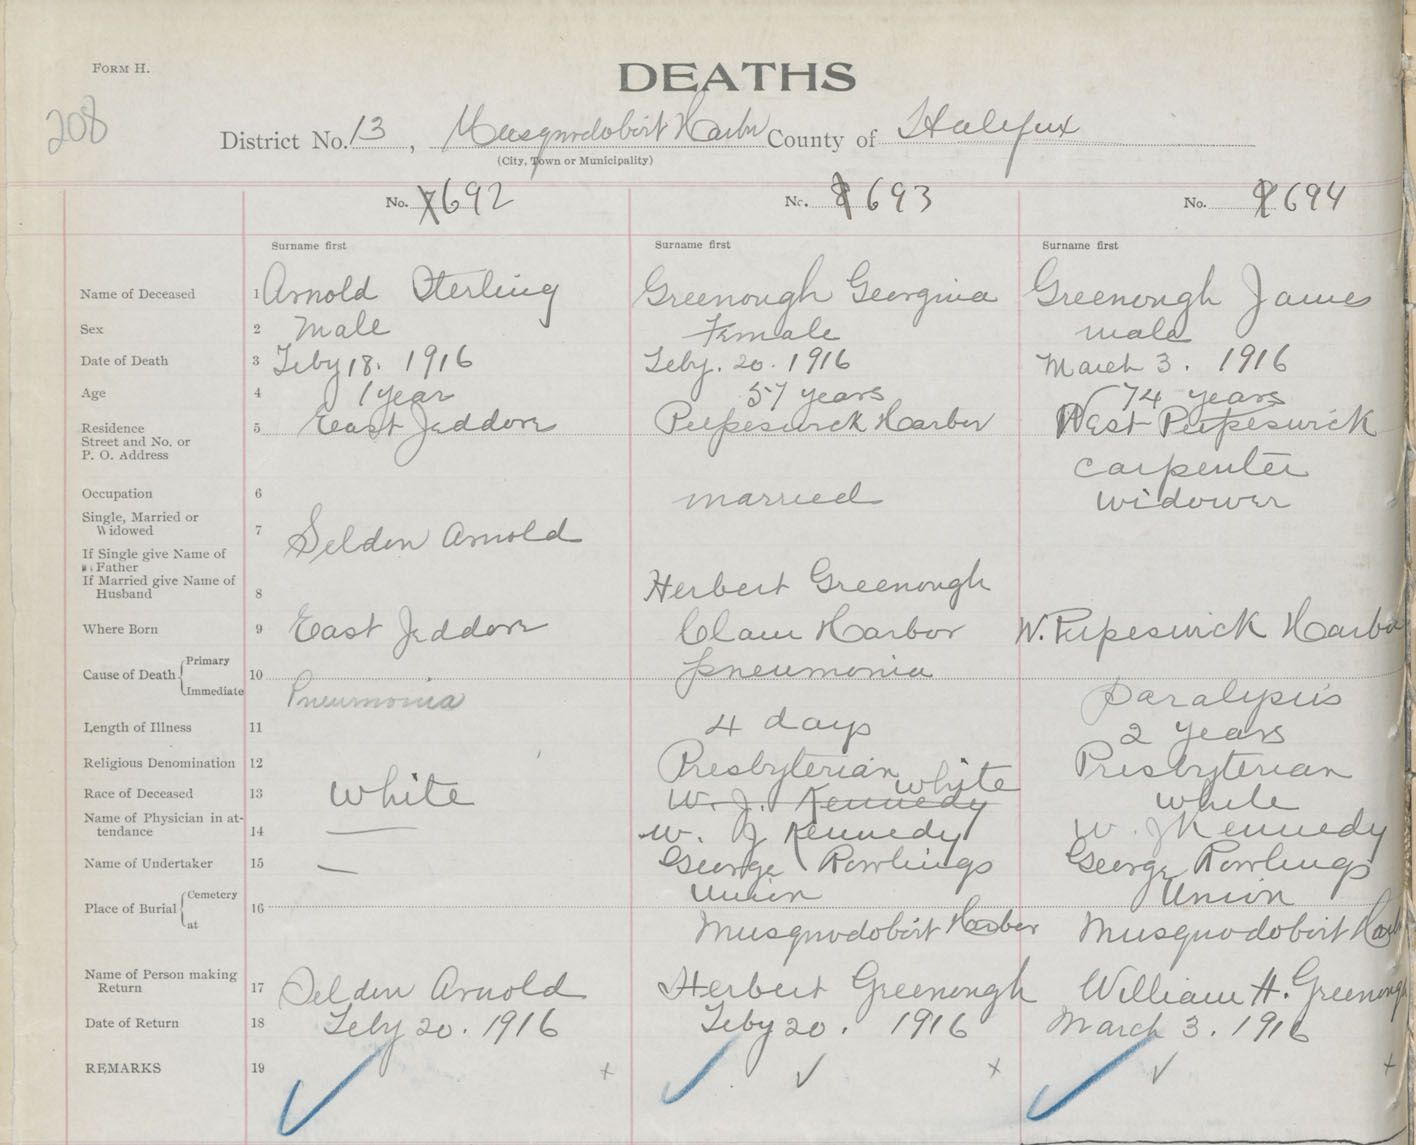 FORM H.
DEATHS
208
District No. 13, Musquodoboit Harbr County of Halifax
(City, Town or Municipality)
No. 7 692 No. 8 693 No. 9 694
Surname first Surname first Surname first
Name of Deceased 1 Arnold Sterling Greenough Georgina Greenough James
Sex 2 male Female male
Date of Death 3 Feby 18. 1916 Feby. 20. 1916 March 3. 1916
Age 4 1 year 57 years 74 years
Residence 5 East Jeddore Petpeswick Harbor West Petpeswick
Street and No. or
P. O. Address
carpenter
Occupation 6 married widower
Single, Married or
Widowed 7 Selden Arnold
If Single give Name of
Father
If Married give Name of
Husband 8 Herbert Greenough
Where Born 9 East Jeddore Clam Harbor W. Petpeswick Harbor
Cause of Death Primary 10 pneumonia
Immediate Pneumonia paralysis
Length of Illness 11 4 days 2 years
Religious Denomination 12 Presbyterian Presbyterian
Race of Deceased 13 white W. J. Kennedy white white
Name of Physician in at-
tendance 14 — W. J Kennedy W. J Kennedy
Name of Undertaker 15 — George Rowlings George Rowlings
Place of Burial Cemetery 16 Union Union
at Musquodoboit Harbor Musquodoboit Harb
Name of Person making
Return 17 Selden Arnold Herbert Greenough William H. Greenough
Date of Return 18 Feby 20. 1916 Feby 20. 1916 March 3. 1916
REMARKS 19 ✓ + ✓ ✓ × ✓ ✓ +